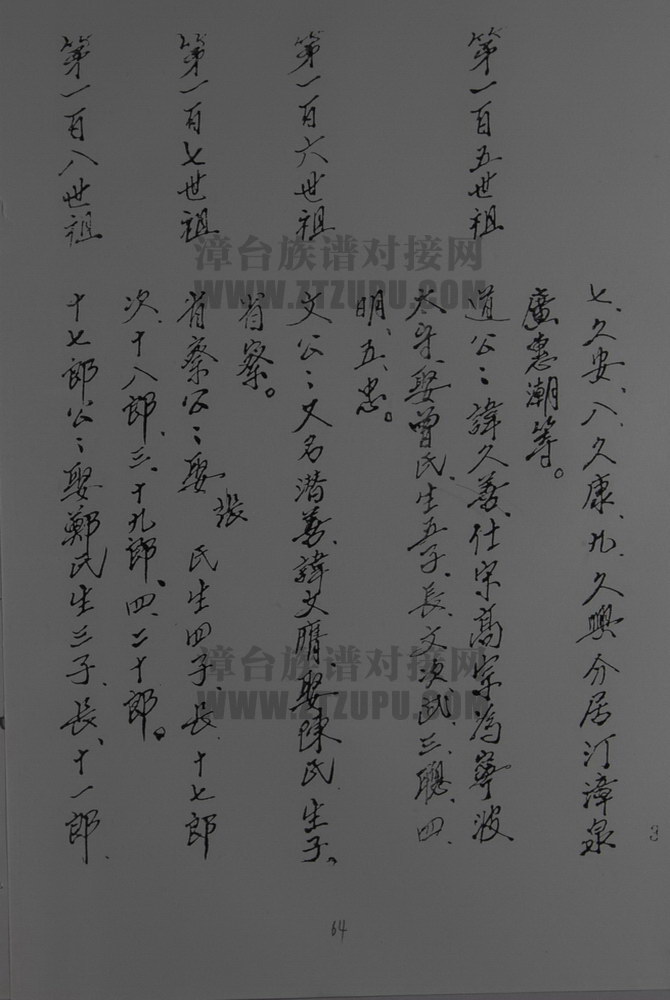 七、久安、八、久康、九、久興分居汀漳泉
廣惠潮等。
第一百五世祖
道公:諱久養、仕宋高宗為寧波
太守、娶曾氏、生五子、長、文次武、三、聰、四、
明、五、忠。
第一百六世祖
文公:又名潜養、諱文 娶陳氏、生子。
省察。
第一百七世祖
省察公:娶張氏生四子、長、十七郎
次、十八郎、三、十九郎、四、二十郎。
第一百八世祖
十七郎公:娶鄭氏生三子、長、十一郎、
64
3
漳台族谱对接网
WWW.ZTZUPU.COM
漳台族谱对接网
WWW.ZTZUPU.COM